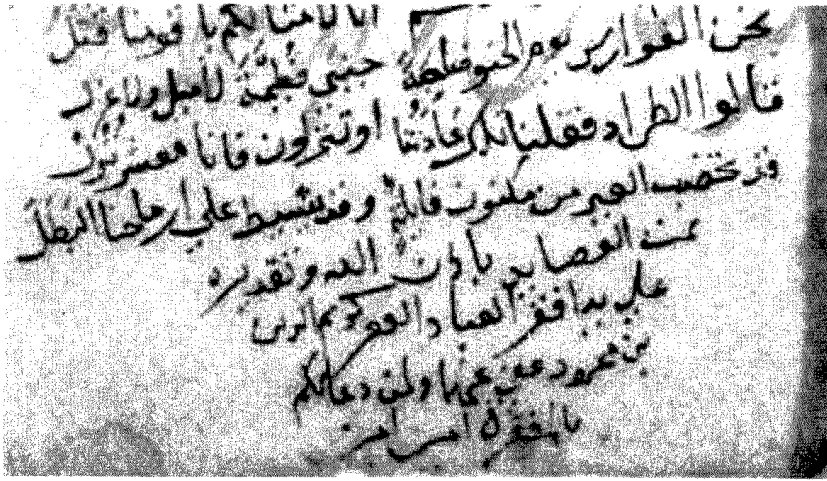 انا لامثالكم يا قومنا قتل
نحن الفوارس يوم الحنو ضاحية جنبي فطيمة لا ميل ولا عزل
قالوا الطراد فقلنا تلك عادتنا او تنزلون فانا معشر نزل
قد نخضب العير من مكنون فائله وقد يشيط على ارماحنا البطل
تمت القصايد باذن الله وتقديره
على يد افقر العباد
بن محمود عفي عنهما ولمن دعا لكم
بالمغفرة امين امين